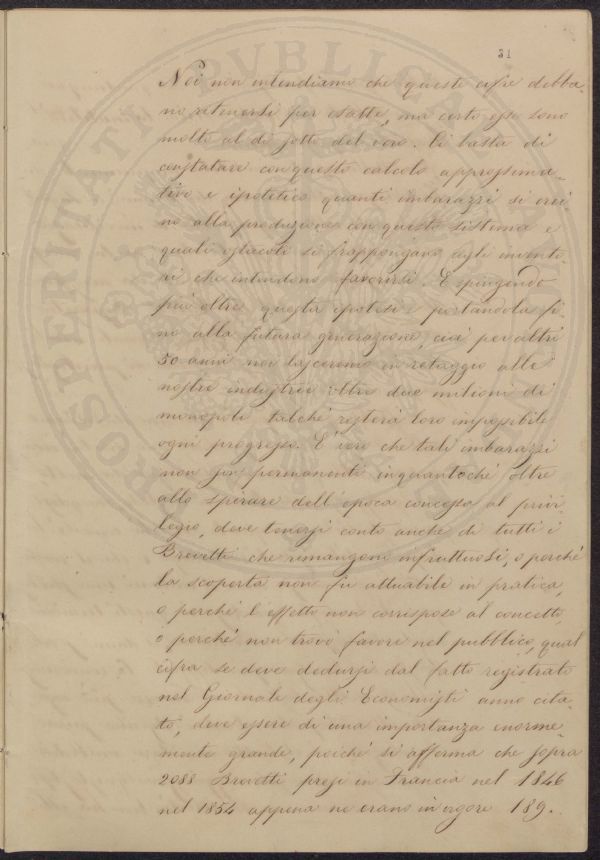 31
Noi non intendiamo che queste cifre debba-
no ritenersi per esatte, ma certo esse sono
molto al di sotto del vero. Ci basta di
constatare con questo calcolo approssima-
tivo e ipotetico quanti imbarazzi si crei-
no alla produzione con questo sistema e
quali ostacoli si frappongano agli invento-
ri che intendono favorirsi. E spingendo
più oltre questa ipotesi e portandola fi-
no alla futura generazione, cioè per altri
30 anni noi lasceremo in retaggio alle
nostre industrie oltre due milioni di
monopoli talchè resterà loro impossibile
ogni progresso. È vero che tali imbarazzi
non son permanenti inquantochè oltre
allo spirare dell'epoca concessa al privi-
legio, deve tenersi conto anche di tutti i
Brevetti che rimangono infruttuosi, o perchè
la scoperta non fu attuabile in pratica,
o perchè l'effetto non corrispose al concetto,
o perchè non trovò favore nel pubblico, qual
cifra se deve dedursi dal fatto registrato
nel Giornale degli Economisti anno cita-
to, deve essere di una importanza enorme-
mente grande, poichè si afferma che sopra
2088 Brevetti presi in Francia nel 1846
nel 1854 appena ne erano in vigore 189.
PUBLICAE
PROSPERITATI